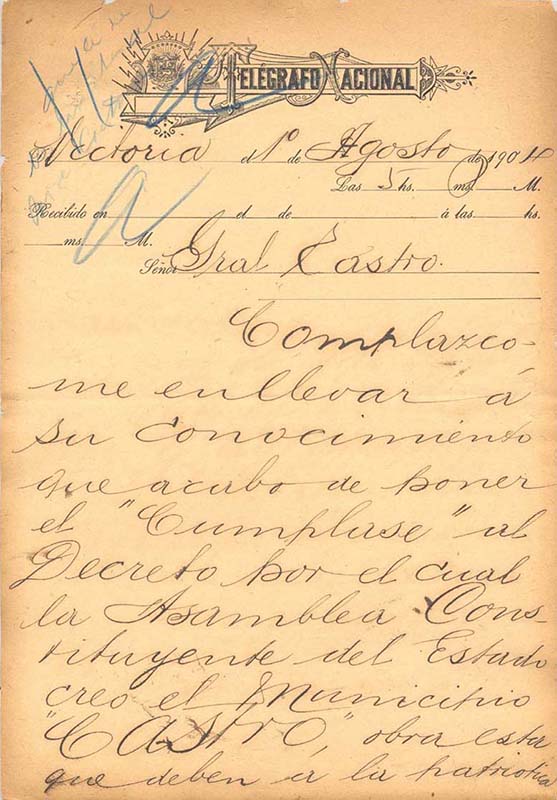 TELÉGRAFO NACIONAL
Victoria el 1º de Agosto de 1904
Las 5 hs. ms. M.
Recibido en el de á las hs.
ms. M.
Señor Gral Castro.
Complazco-
me en llevar á
su conocimiento
que acabo de poner
el "Cumplase" al
Decreto por el cual
la Asamblea Cons-
tituyente del Estado
creo el Municipio
"CASTRO," obra esta
que deben a la patriotica